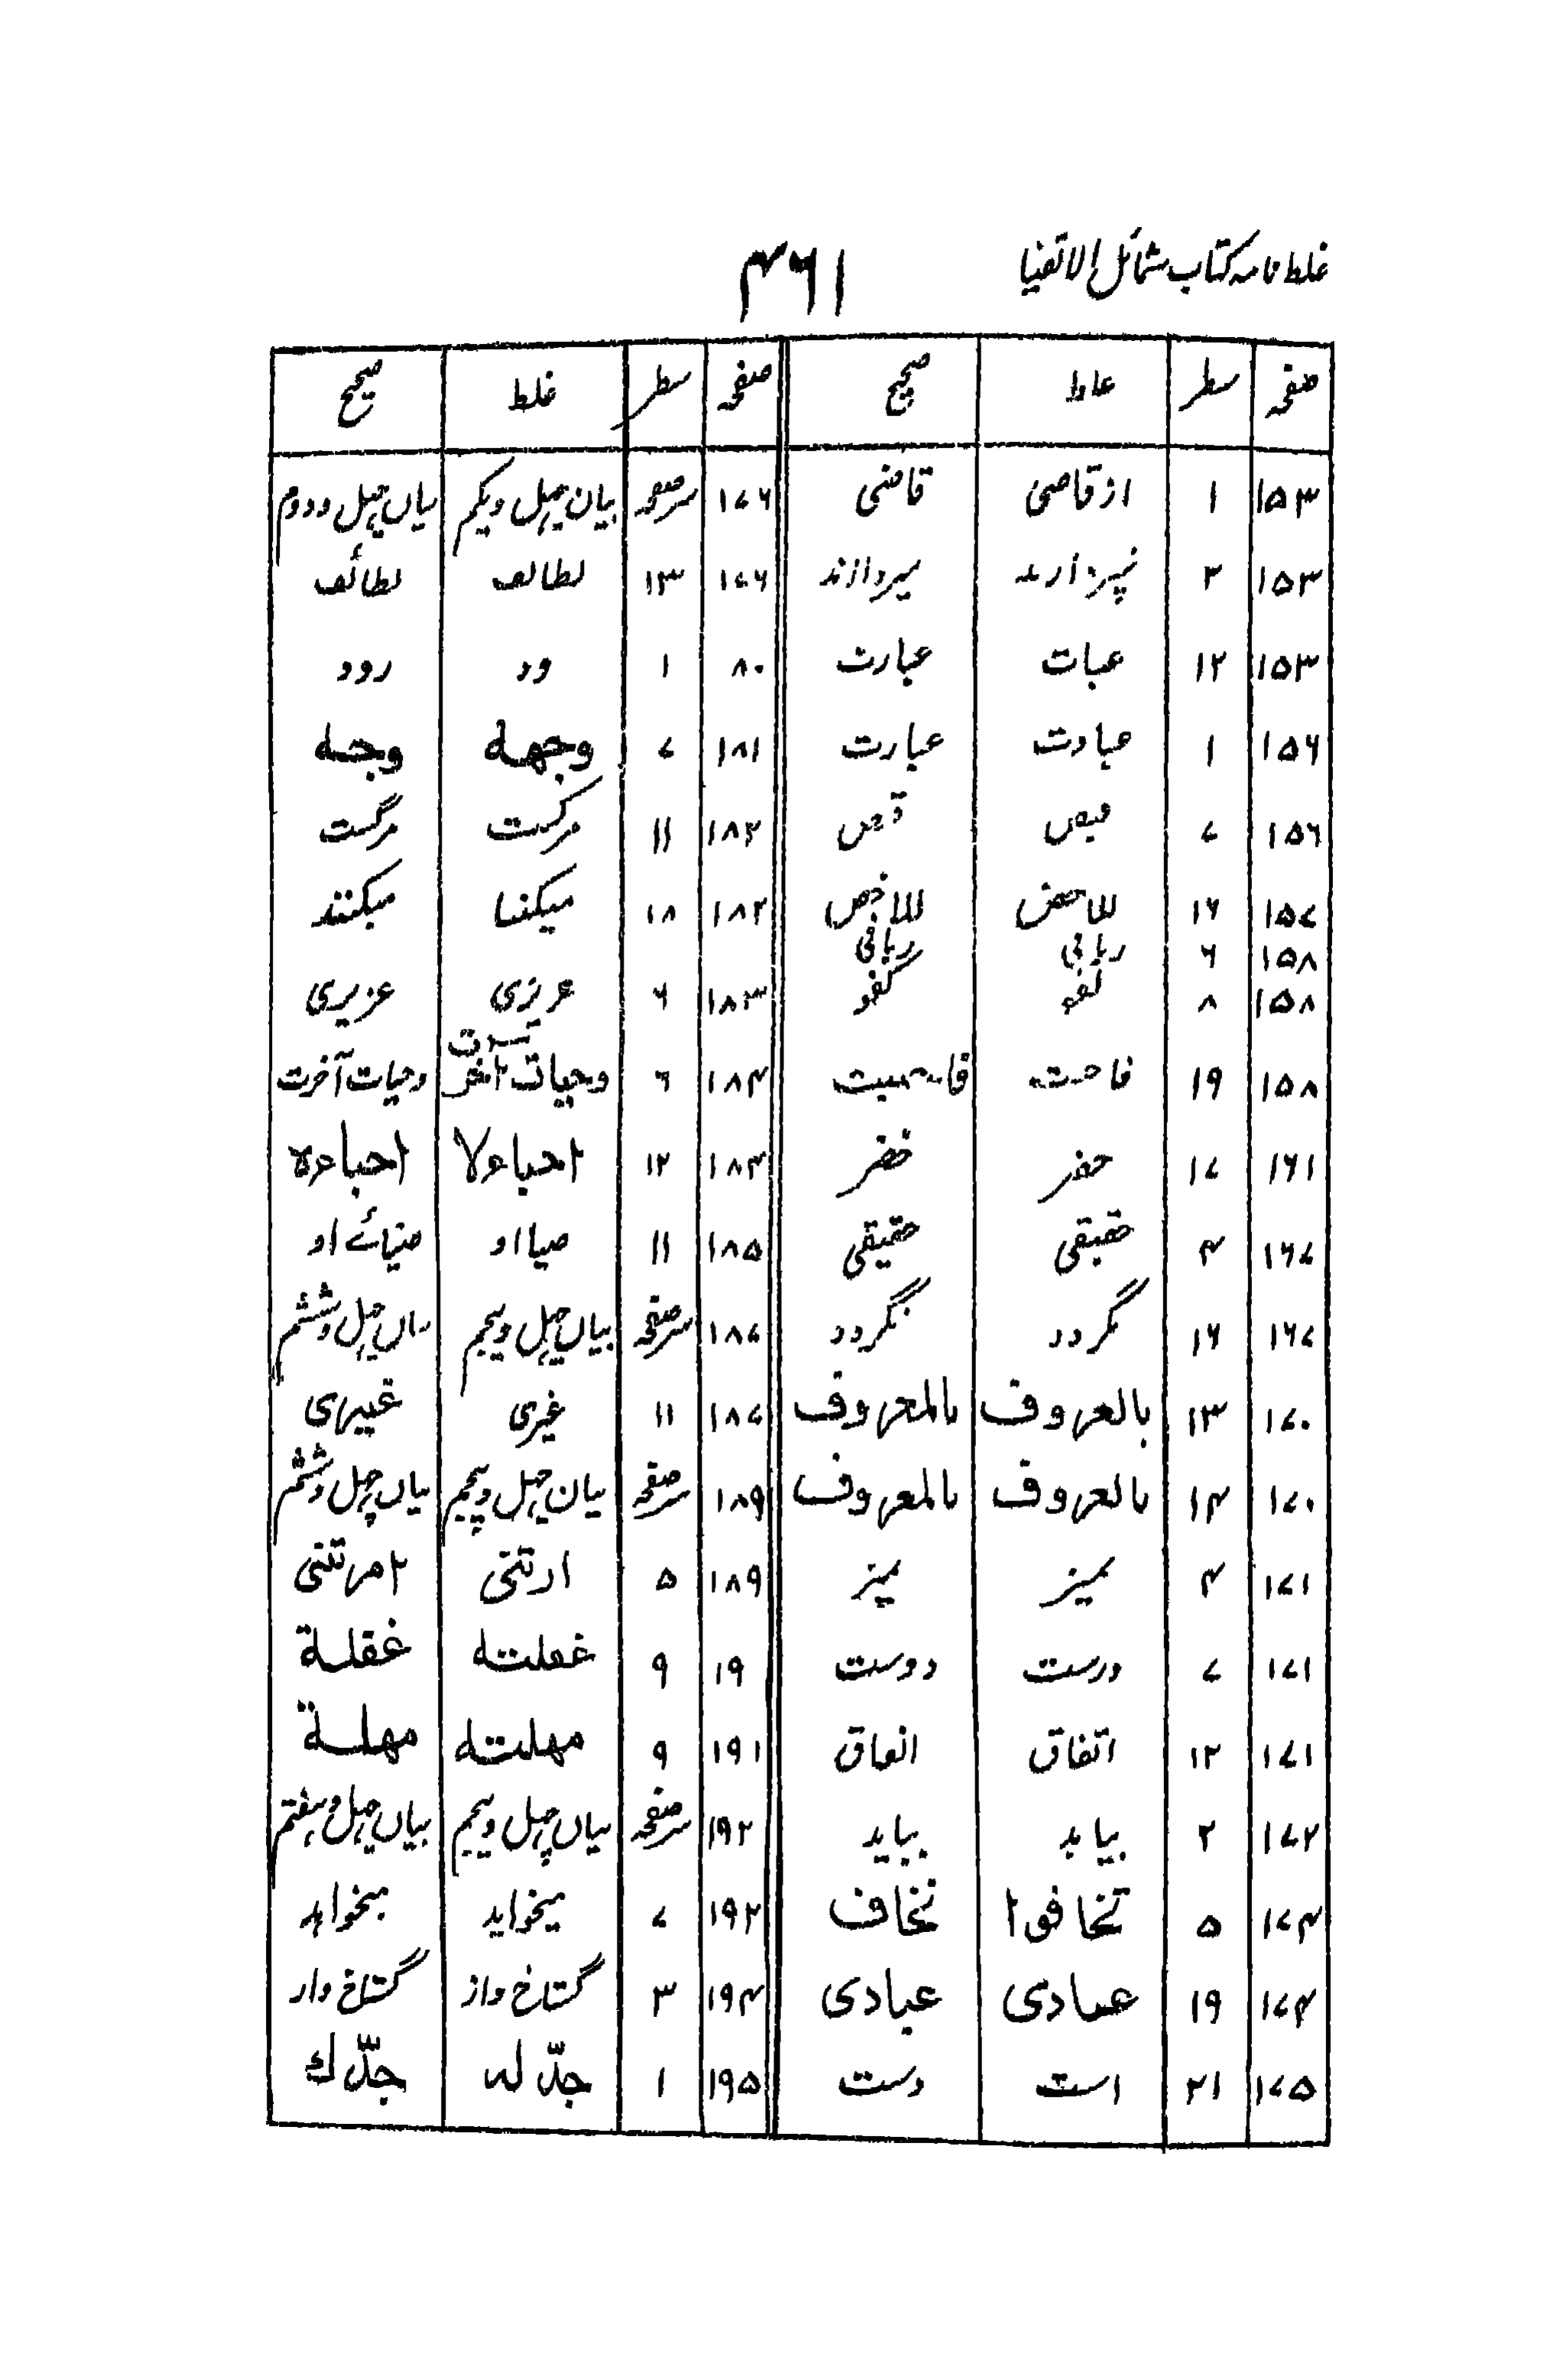 غلط نامہ کتاب شمائل الاتقیا
۴۶۱
صفحہ سطر غلط صحیح صفحہ سطر غلط صحیح
۱۵۳ ۱ از قاصی قاضی ۱۷۶ سرصفحہ بیان چہل ویکم بیاں چہل ودوم
۱۵۳ ۲ ۱۷۶ ۱۳ لطالف لطائف
۱۵۳ ۱۲ عبات عبارت ۸۰ ۱ ود رود
۱۵۶ ۱ عبادت عبارت ۱۸۱ ۷ وجهه وجه
۱۵۶ ۷ ۱۸۲ ۱۱ مرکست مرگست
۱۵۷ ۱۶ ۱۸۲ ۱۸ میکنندا میکنند
۱۵۸ ۶ ربانی
۱۵۸ ۸ لفو کفو ۱۸۳ ۶ عریزی عزیزی
۱۵۸ ۱۹ ۱۸۴ ۶ وحیات آخر وحیات آخرت
۱۶۱ ۱۷ حفر خضر ۱۸۴ ۱۲ احباءلا احباءہ
۱۶۷ ۴ حقیقی ۱۸۵ ۱۱ صیااو ضیائے او
۱۶۷ ۱۶ گردد نگردد ۱۸۷ سرصفحہ بیاں چہل وپنجم بیاں چہل وششم
۱۷۰ ۱۳ بالعروف بالمعروف ۱۸۷ ۱۱ غیری غیری
۱۷۰ ۱۴ بالعروف بالمعروف ۱۸۹ سرصفحہ بیان چہل وپنجم بیاں چہل وششم
۱۷۱ ۴ ۱۸۹ ۵ ارتنی
۱۷۱ ۷ درست دوست ۱۹ ۹ غفلته غفلة
۱۷۱ ۱۲ اتفاق انفاق ۱۹۱ ۹ مهلته مهلة
۱۷۲ ۲ بیابد بباید ۱۹۲ سرصفحہ بیاں چہل وپنجم بیاں چہل وہفتم
۱۷۴ ۵ تخافوا نخاف ۱۹۲ ۷ میخواید میخواہد
۱۷۴ ۱۹ عبادی عبادی ۱۹۴ ۳ گستاخ واز گستاخ وار
۱۷۵ ۲۱ است دست ۱۹۵ ۱ جدّ لہ جدّ ك